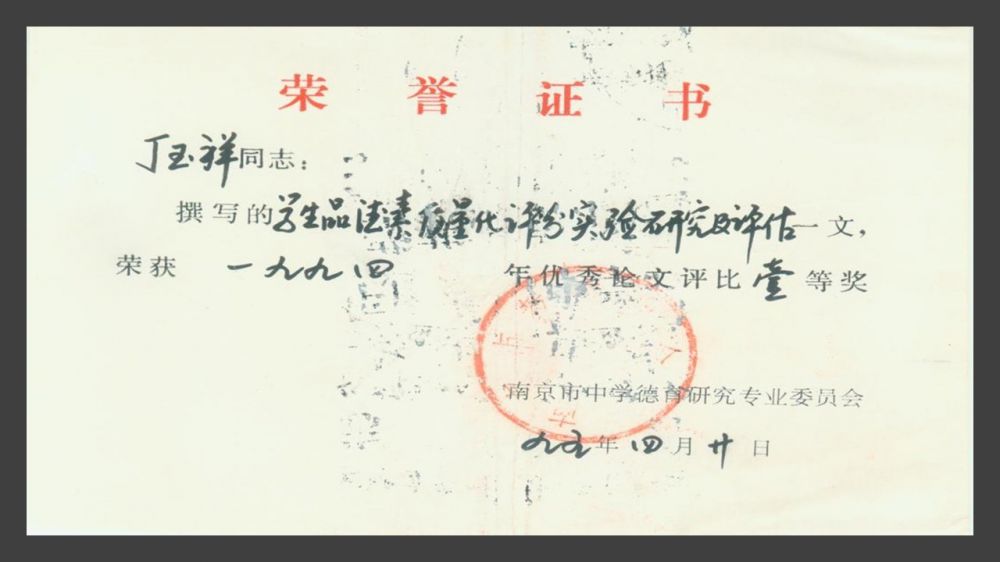 荣誉证书
丁玉祥同志：
撰写的学生品德素质量化评分实验研究及评估一文，
荣获 一九九四 年优秀论文评比壹等奖
南京市中学德育研究专业委员会
九五年四月廿日